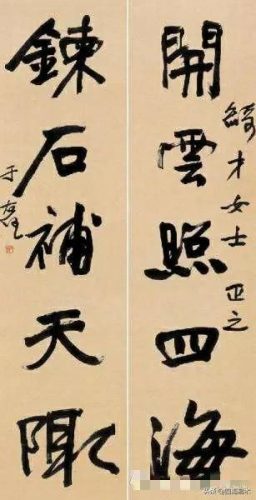 綺才女士正之
開雲照四海
鍊石補天陬
于右任